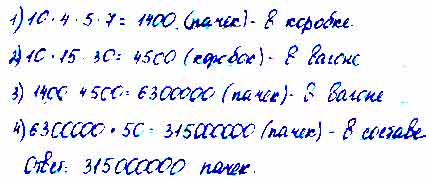 1) 10 · 4 · 5 · 7 = 1400 (пачек) - в коробке.
2) 10 · 15 · 30 = 4500 (коробок) - в вагоне
3) 1400 · 4500 = 6300000 (пачек) - в вагоне
4) 6300000 · 50 = 315000000 (пачек) - в составе
Ответ: 315000000 пачек.